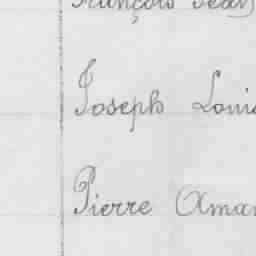 François Jean
Joseph Loui
Pierre Aman